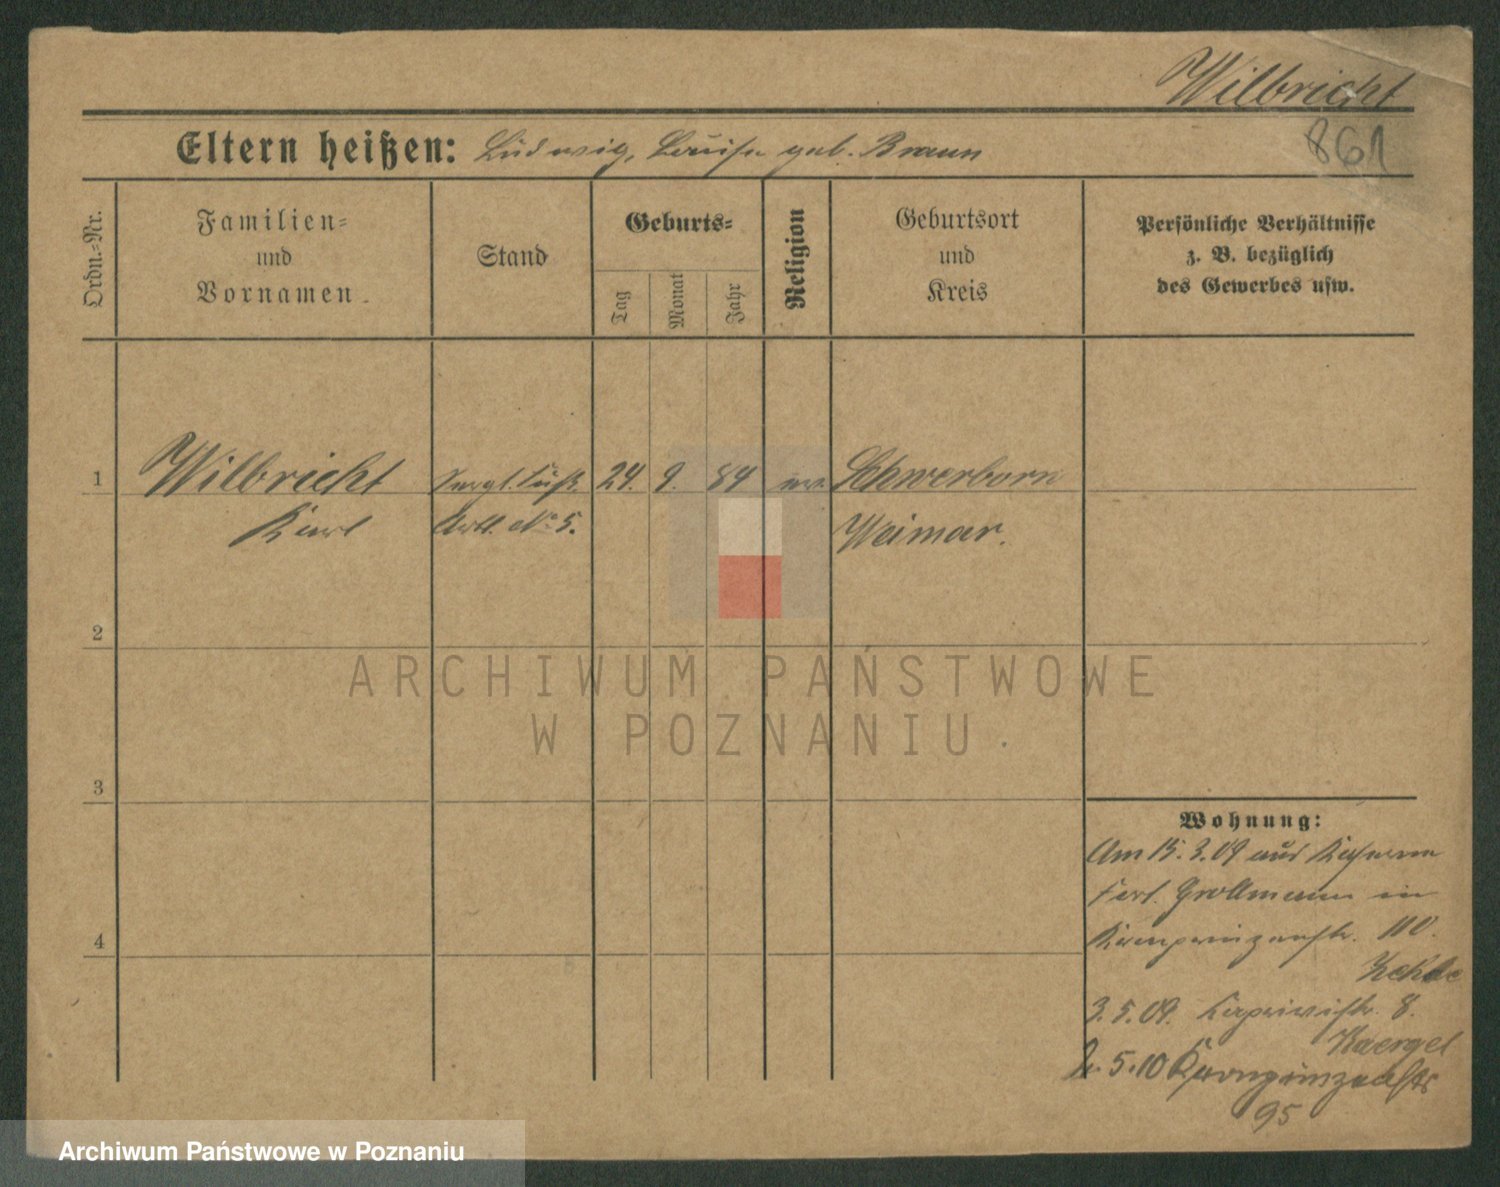 Wilbricht
861
Eltern heißen: Ludwig, Louise geb. Braun
Ordn.-Nr.
Familien-
und
Vornamen
Stand
Geburts-
Tag
Monat
Jahr
Religion
Geburtsort
und
Kreis
Persönliche Verhältnisse
z. B. bezüglich
des Gewerbes usw.
1 Wilbricht Sergt. Fuß 24. 9. 84 ev. Schwerborn
Karl Artl. No 5. Weimar.
2
ARCHIWUM PAŃSTWOWE
W POZNANIU
3
Wohnung:
Am 15.3.09 aus Kaserne
Fort Grollmann in
4
Kronprinzenstr. 110.
3.5.09. Kaprivistr. 8.
Kaergel
2.5.10 Kronprinzenstr
95
Archiwum Państwowe w Poznaniu